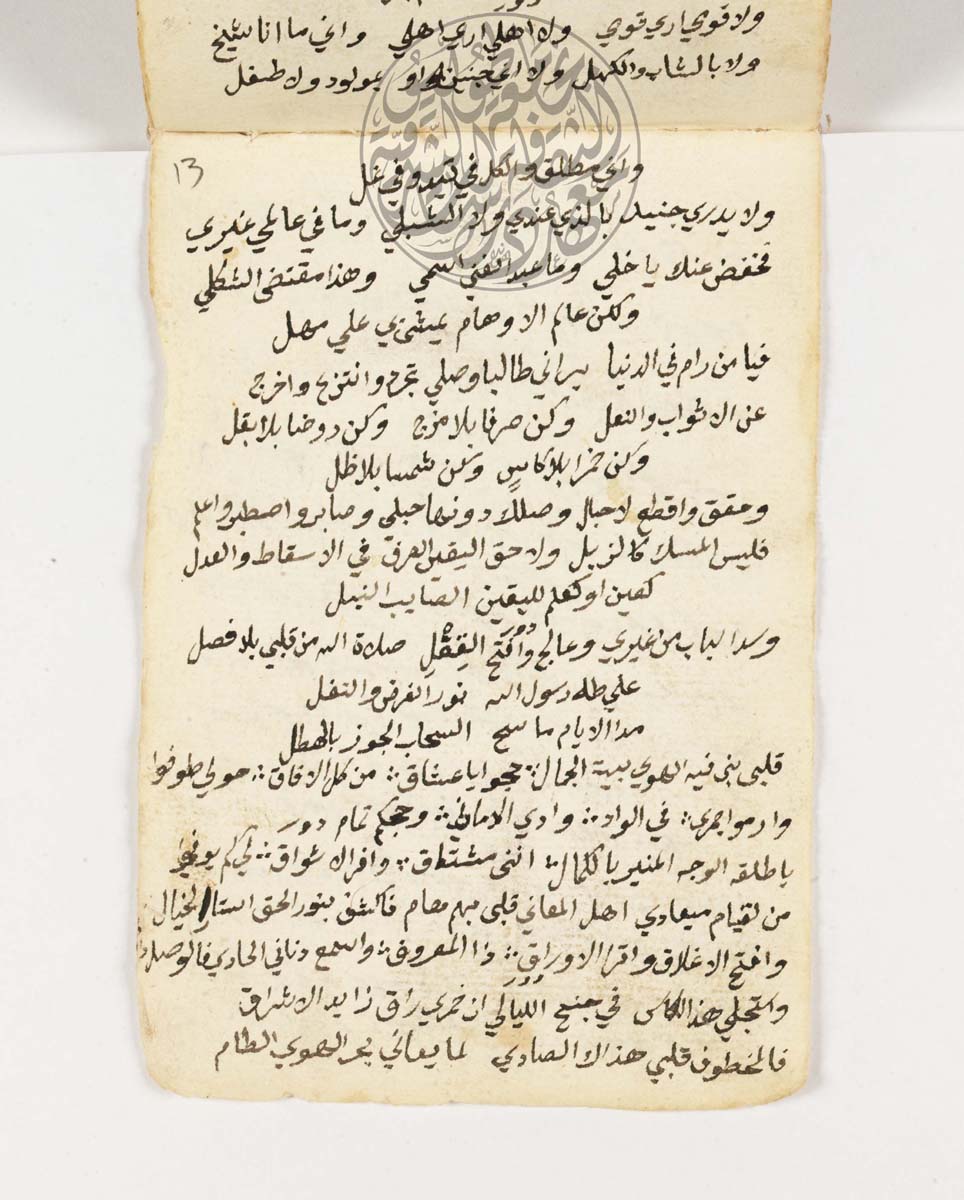 ولا قوي اري قوي ولا اهلي اري اهلي واني ما انا شيخ
ولا بالشاب والكهل ولا اني جنين او بمولود ولا طفل
13
واني مطلق والكل في قيد وفي غل
ولا يدري جنيد بالذي عندي ولا الشبلي وما في عالمي غيري
فخفض عنك يا خلي وما عبد الغني اسمي وهذا مقتضى الشكلي
ولكن عالم الاوهام يمشي بي علي مهل
فيا من رام في الدنيا يراني طالبا وصلي تجرد وانتزح واخرج
عن الاثواب والنعل وكن صرفا بلا مزج وكن روضا بلا بقل
وكن خمرا بلا كاس وكن شمسا بلا ظل
وحقق واقطع لاحبال وصلك دونها حبلي وصابر واصطبر واعلم
فليس المسك كالزبل ولا حق اليقين الفرق في الاسقاط والعدل
كعين او كعلم لليقين الصايب النبل
وسد الباب من غيري وعالج وافتح القفل صلاة الله من قلبي بلا فصل
علي طه رسول الله نور الفرض والنفل
مدا الايام ما سح السحاب الجوز بالهطل
قلبي بني فيه الهوي بيت الجمال حجوا يا عشاق من كل الافاق حولي طوفوا
وارموا جمري في الواد وادي الاماني وحجكم تمام دور
يا طلقه الوجه المنير بالكمال انني مشتاق وافر الاشواق لي كم يوفوا
من لقيام ميعادي اهل المعاني قلبي بهم مهام فاكشف بنور الحق استار الخيال
وافتح الاغلاق واقرا الاوراق ذا المعروف واسمع دناني الحادي فالوصل
واستجلي هذا الكاس في جنح الليالي ان خمري راق زايد الاشراق
فالمخطوف قلبي هذاك الصادي لما يعاني بحر الهوي الطام